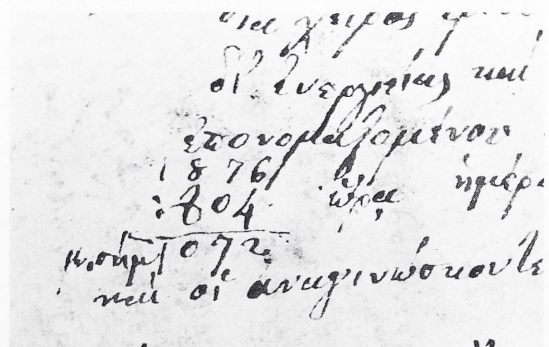 διὰ χειρὸς
δι' ἐνεργείας καὶ
ἐπονομαζομένου
1876
804 ὥρα ἡμέρα
072
καὶ οἱ ἀναγινώσκοντε